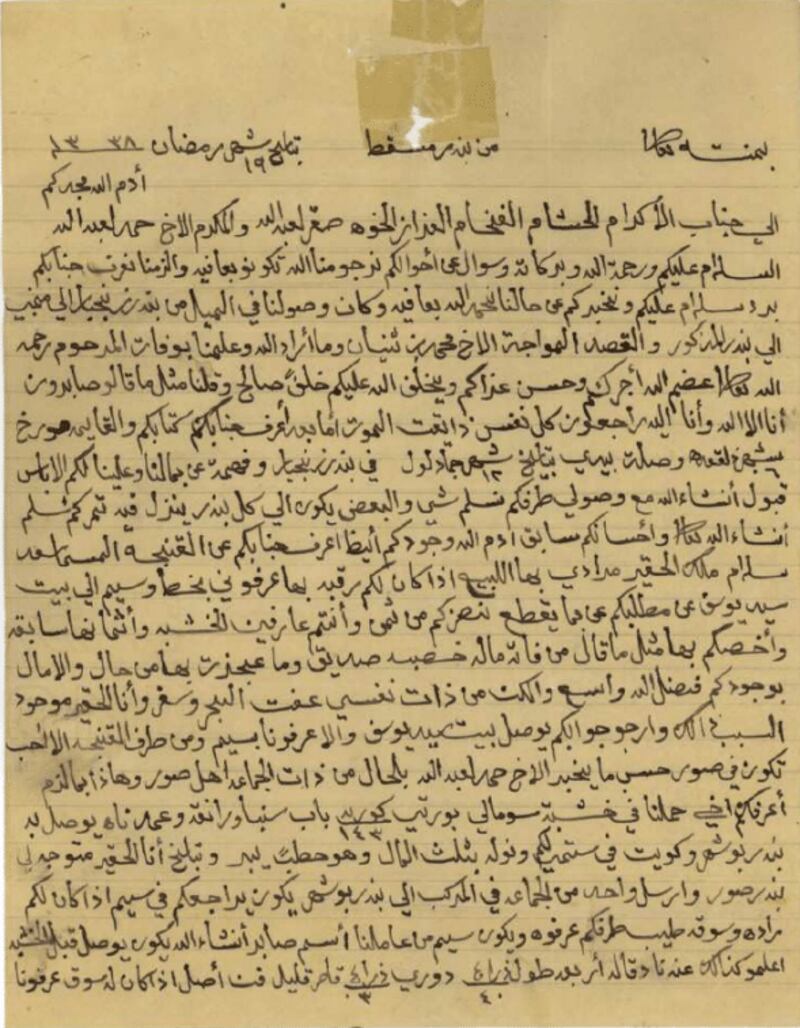 بمنه تعالى من بندر مسقط بتاريخ ١٩ شهر رمضان ١٣٣٨
أدم الله مجدكم
الي جناب الأكرام الحشام الفخام العزاز الخوه صقر لعبدالله والمكرم الاخ حمد لعبدالله
السلام عليكم ورحمة الله وبركاته وسوال عن أحوالكم نرجو من الله تكونو بعافيه والزمنا نعرف جنابكم
برد سلام عليكم ونخبركم عن حالنا نحمد الله بعافيه وكان وصولنا في الميل من بندر زنجبار الي
الي بندر المذكور والقصد المواجهة الاخ محمد بن ثنيان وما أراد الله وعلمنا بوفات المرحوم رحمه
الله تعالى أعضم الله أجركم وحسن عزاكم ويخلف الله عليكم خلف صالح وقلنا مثل ما قالو صابرون
أنا الا الله وأنا اليه راجعون كل نفس ذايقت الموت أما بعد أعرف جنابكم كتابكم والقايمه مورخ
شهر لقعده وصلت بيدي بتاريخ ١٢ شهر جماد لول في بندر زنجبار وفهمة عن بمالنا وعلينا لكم الاباس
قبول أنشاء الله مع وصولي طرفكم نسلم شي والبعض يكون الي كل بندر ينزل فيه تمركم نسلم
أنشاء الله تعالى وأحسانكم سابق ادم الله وجودكم أيضا اعرف جنابكم عن القنجه المسما سعد
سلام ملك الحقير مرادي بها اللبيع اذا كان لكم رقبه بها عرفوني بخط أو سيم الي بيت
سيد يوسف عن مطلبكم عن بما يقطع نضركم من ثمن وأنتم عارفين الخشبه وأثمانها سابقه
وأخصكم بها مثل ما قال من فاته ماله خصبه صديق وما عجزت بها من حال والامال
بوجودكم فضل الله واسع والكن من ذات نفسي عفت البحر وسفر وأنا الحقير موجود
السبب ذالك وارجو جوابكم يوصل بيت سيد يوسف والا عرفونا بسيم ومن طرف القنجه الاقرب
تكون في صور حسب ما يخبر الاخ حمد لعبدالله بالحال من ذات الجماعه اهل صور وهاذا بما لزم
أعرفكم أخي حملنا في خشبة سومالي بورتي كوريه ١٤٣ باب سنباورانقه وعمدناه يوصل به
بندر بوشهر وكويت في ستميركم ونوله بثلث المال وهو حطب بير وبتاريخ أنا الحقير متوجه لي
بندر صور وارسل واحد من الجماعه في المركب الي بندر بوشهر يكون يراجعكم في سيم اذا كان لكم
مراده وسوقه طيب طرفكم عرفوه ويكون سيم من عاملنا أسيم صابر أنشاء الله يكون يوصل قبل الخشبه
اعلمو كذالك عنه تادقاله أربعه طول ذراع ٤ دوري ذراع ٣ قاصر قليل فت أصل اذا كان له سوق عرفونا